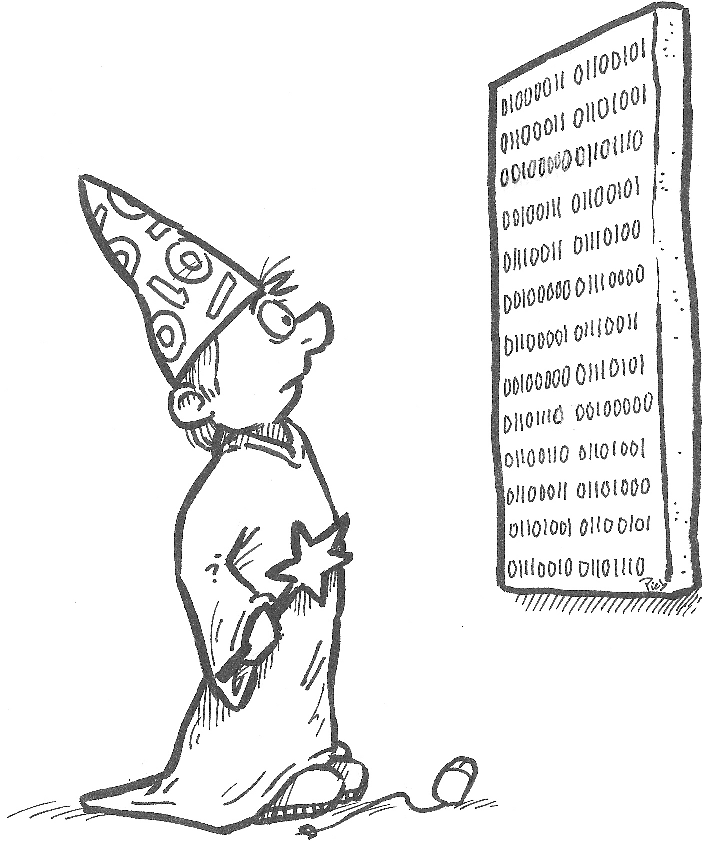 01000011 01100101
01100011 01101001
00100000 01101110
00100111 01100101
01110011 01110100
00100000 01110000
01100001 01110011
00100000 01110101
01101110 00100000
01100110 01101001
01100011 01101000
01101001 01100101
01110010 01101110